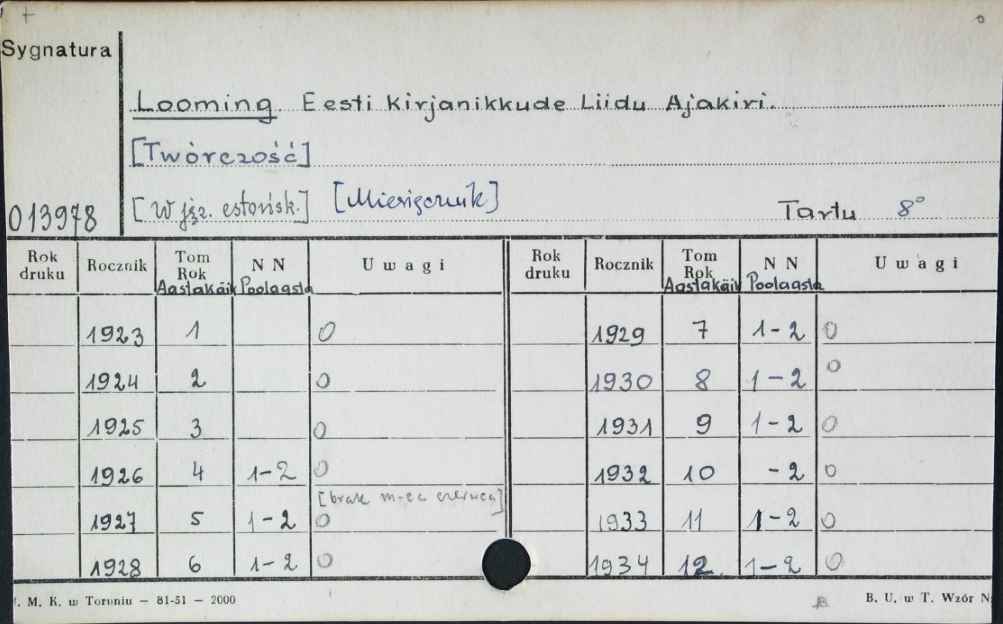 Sygnatura
Looming Eesti Kirjanikkude Liidu Ajakiri.
[Twórczość]
013978 [W jęz. estońsk.] [Miesięcznik] Tartu 8°
Rok druku Rocznik Tom Rok Aastakäik NN Poolaasta Uwagi Rok druku Rocznik Tom Rok Aastakäik NN Poolaasta Uwagi
1923 1 0 1929 7 1-2 0
1924 2 0 1930 8 1-2 0
1925 3 0 1931 9 1-2 0
1926 4 1-2 0 1932 10 -2 0
[brak m-ca czerwca]
1927 5 1-2 0 1933 11 1-2 0
1928 6 1-2 0 1934 12 1-2 0
M. K. w Toruniu — 81-51 — 2000 B. U. w T. Wzór N